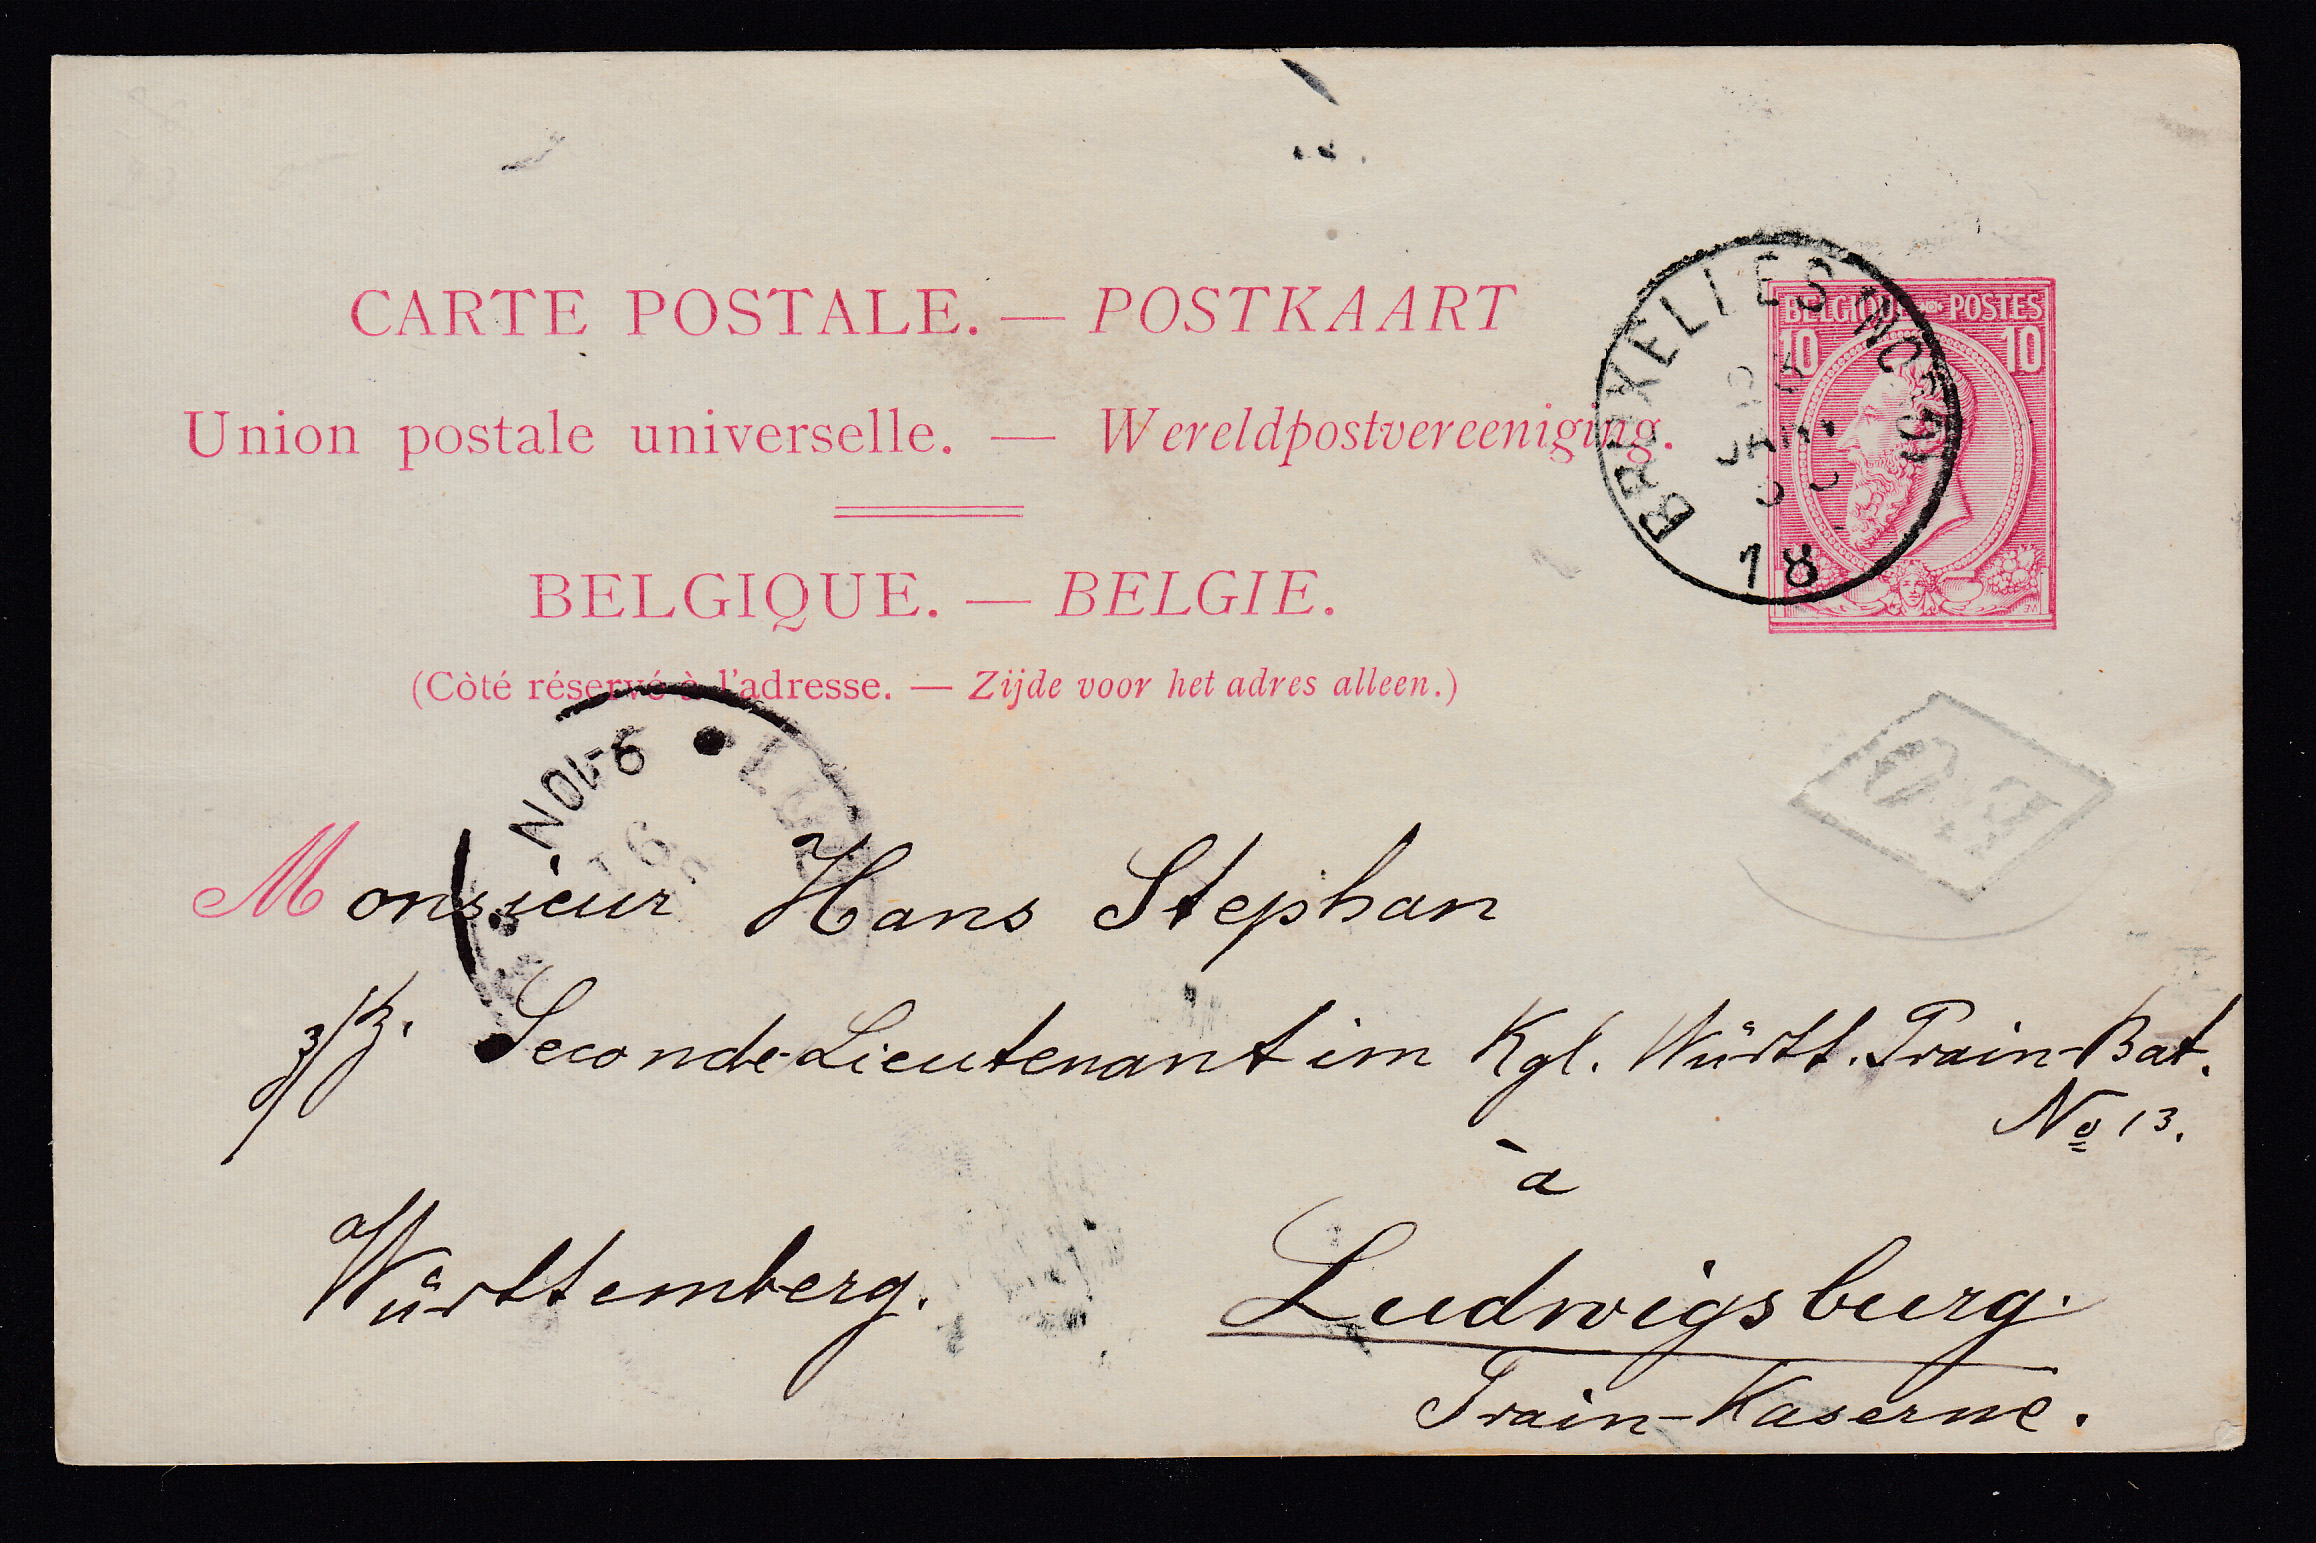 CARTE POSTALE. — POSTKAART
Union postale universelle. — Wereldpostvereeniging.
BELGIQUE. — BELGIE.
(Côté réservé à l'adresse. — Zijde voor het adres alleen.)
BELGIQUE POSTES
10 10
BRUXELLES NORD
18
9-10N
Monsieur Hans Stephan
Seconde-Lieutenant im Kgl. Württ. Train-Bat.
No 13.
à
Württemberg. Ludwigsburg.
Train-Kaserne.